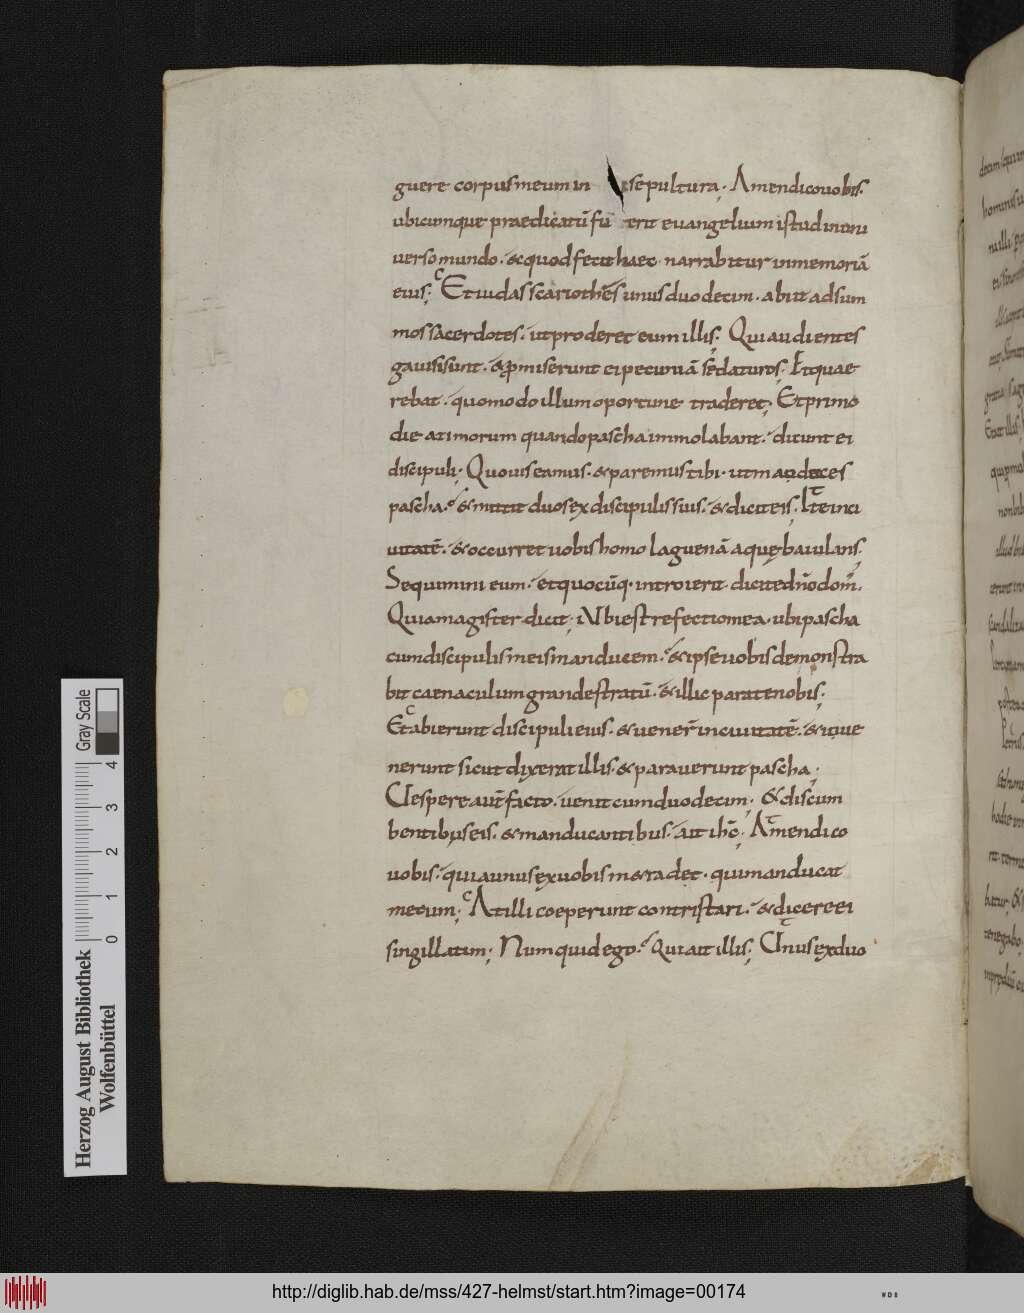 guere corpus meum in sepultura. Amen dico vobis.
ubicumque praedicatū fu erit evangelium istud in uni
verso mundo. & quod fecit haec. narrabitur in memoriā
eius; Et iudas scariothes unus duodecim. abiit ad sum
mos sacerdotes. ut proderet eum illis. Qui audientes
gavisi sunt. & ꝓmiserunt ei pecuniā se daturos; Et quae
rebat. quomodo illum oportune traderet; Et primo
die atimorum quando pascha immolabant. dicunt ei
discipuli; Quo vis eamus. & paremus tibi. ut manduces
pascha. & mittit duos ex discipulis suis. & dicit eis; Ite in ci
uitatē. & occurret vobis homo laguenā aquę baiulans;
Sequimini eum. et quocūq. introierit. dicite dn̄o dom̄.
Quia magister dicit; Ubi est refectio mea. ubi pascha
cum discipulis meis manducem. & ipse vobis demonstra
bit caenaculum grande stratū. & illic parate nobis;
Et abierunt discipuli eius. & vener̄ in civitatē. & inve
nerunt sicut dixerat illis. & paraverunt pascha;
Vespere aut̄ facto. venit cum duodecim; & discum
bentibus eis. & manducantibus. ait ih̄c; Amen dico
vobis. quia unus ex vobis me tradet. qui manducat
mecum; At illi coeperunt contristari. & dicere ei
singillatim; Numquid ego. Qui ait illis; Unus ex duo
Gray Scale
4
3
2
1
0
Herzog August Bibliothek
Wolfenbüttel
http://diglib.hab.de/mss/427-helmst/start.htm?image=00174